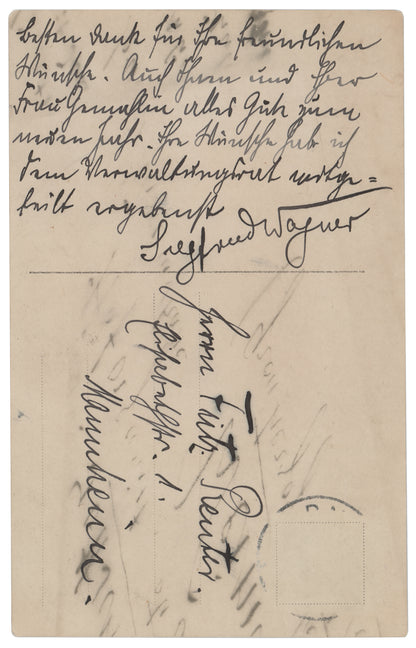 Besten Dank für Ihre freundlichen
Wünsche. Auch Ihnen und Ihrer
Frau Gemahlin alles Gute zum
neuen Jahr. Ihre Wünsche hab ich
dem Verwaltungsrat mitge=
teilt ergebenst
Siegfried Wagner
Herrn Fritz Reuter.
1.
Mannheim.